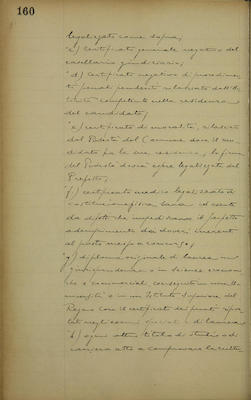 160
legalizzato come sopra;
c) certificato generale negativo del
casellario giudiziario;
d) certificato negativo di procedimen
ti penali pendenti rilasciato dall'Au
torità competente nella residenza
del candidato;
e) certificato di moralità, rilasciato
dal Podestà del Comune dove il can
didato ha la sua residenza, la firma
del Podestà dovrà essere legalizzata dal
Prefetto;
f) certificato medico legalizzato di
costituzione fisica sana ed esente
da difetti che impediscano il perfetto
adempimento dei doveri inerenti
al posto messo a concorso;
g) diploma originale di laurea in
giurisprudenza o in scienze economi
che e commerciali conseguito in una R.
università o in un Istituto Superiore del
Regno con il certificato dei punti ripor
tati negli esami speciali e di laurea;
h) ogni altro titolo di studio o di
carriera atto a comprovare la cultu